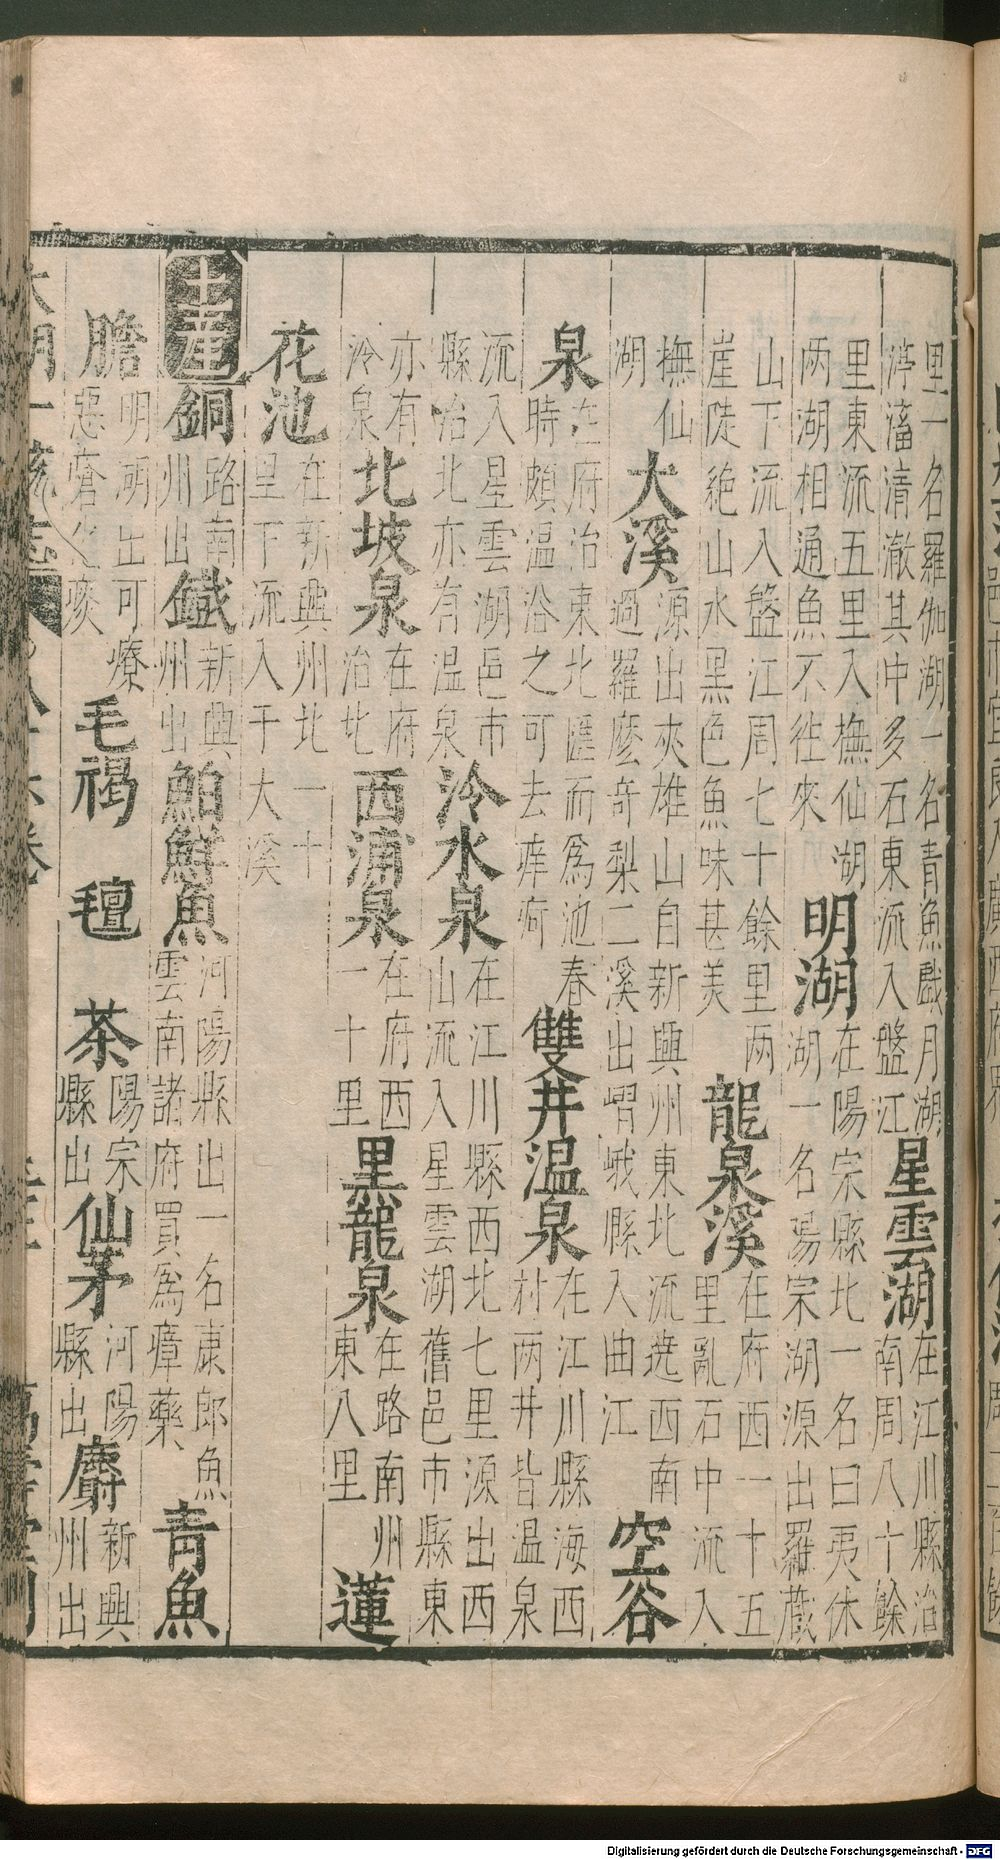 里一名羅伽湖一名青魚戲月湖
渟滀清澈其中多石東流入盤江
星雲湖
在江川縣治
南周八十餘
里東流五里入撫仙湖
兩湖相通魚不往來
明湖
在陽宗縣北一名曰夷休
湖一名陽宗湖源出羅藏
山下流入盤江周七十餘里兩
崖陡絕山水黑色魚味甚美
龍泉溪
在府西一十五
里亂石中流入
撫仙
湖
大溪
源出夾雄山自新興州東北流遶西南
過羅麼奇梨二溪出嶍峨縣入曲江
空谷
泉
在府治東北匯而為池春
時頗溫浴之可去痒疴
雙井温泉
在江川縣海西
村兩井皆温泉
流入星雲湖邑市
縣治北亦有温泉
冷水泉
在江川縣西北七里源出西
山流入星雲湖舊邑市縣東
亦有
冷泉
北坡泉
在府
治北
西浦泉
在府西
一十里
黑龍泉
在路南州
東八里
蓮
花池
在新興州北一十
里下流入于大溪
土產
銅
路南
州出
鐵
新興
州出
鮊鮮魚
河陽縣出一名康郎魚
雲南諸府買為瘴藥
青魚
膽
明湖出可療
惡瘡化痰
毛褐
氊
茶
陽宗
縣出
仙茅
河陽
縣出
麝
新興
州出
大明一統志
Digitalisierung gefördert durch die Deutsche Forschungsgemeinschaft - DFG